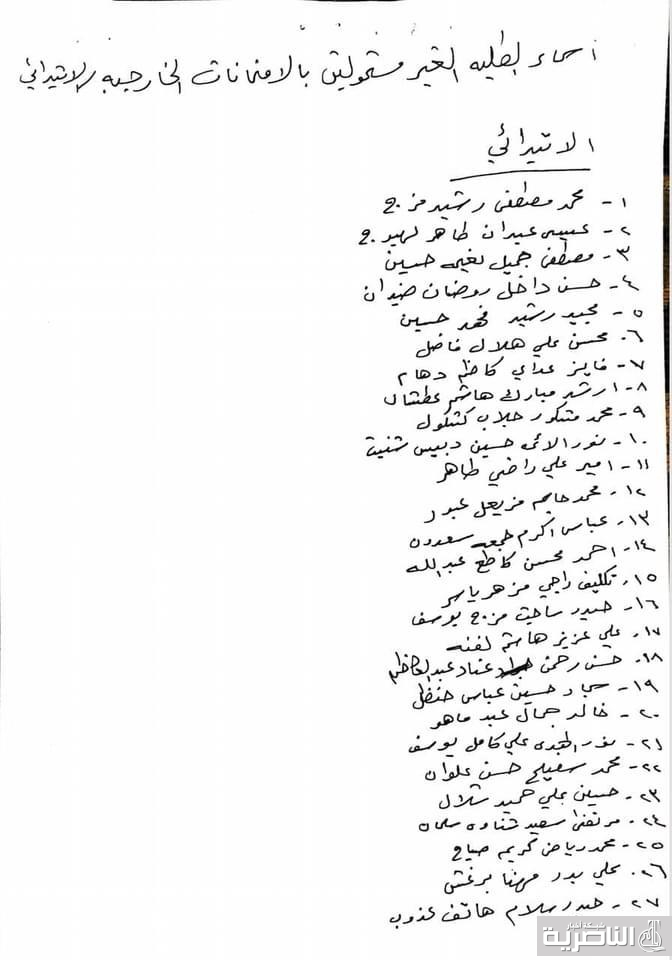 اسماء الطلبه الغير مشمولين بالامتحانات الخارجيه الابتدائي
الابتدائي
١- محمد مصطفى رشيد مزج
٢- عيسى عيدان طاهر لهيج
٣- مصطفى جميل نغيمه حسين
٤- حسن داخل روضان ضيدان
٥- مجيد رشيد فهد حسين
٦- محسن علي هلال فاضل
٧- فايز عداي كاظم دهام
٨- ارشد مبارك هاشم عطشان
٩- محمد مشكور جلاب كشكول
١٠- نور الائمه حسين دبيس شنيت
١١- امير علي راضي طاهر
١٢- محمد جاسم مزيعل عبود
١٣- عباس اكرم جمعه سعدون
١٤- احمد محسن كاطع عبدالله
١٥- تكليف راجي مزهر ياسر
١٦- حيدر ساجت مزج يوسف
١٧- علي عزيز هاشم لفته
١٨- حسن رحمن عناد عبدالكاظم
١٩- سجاد حسين عباس حنظل
٢٠- خالد جمال عبد ماهو
٢١- نور الهدى علي كامل يوسف
٢٢- محمد سفيح حسن علوان
٢٣- حسين علي حميد شلال
٢٤- مرتضى سعيد شناوه سلمان
٢٥- محمد رياض كريم صياح
٢٦- علي بدر مهنا برغش
٢٧- حيدر سلام هاتف عذوب
شبكة اخبار
الناصرية